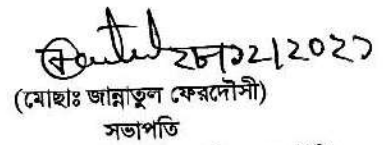 ২৮/১২/২০২১
(মোছাঃ জান্নাতুল ফেরদৌসী)
সভাপতি